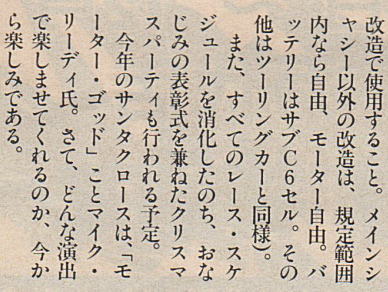 改造で使用すること。メインシ
ャシー以外の改造は、規定範囲
内なら自由、モーター自由。バ
ッテリーはサブC6セル。その
他はツーリングカーと同様)。
また、すべてのレース・スケ
ジュールを消化したのち、おな
じみの表彰式を兼ねたクリスマ
スパーティも行われる予定。
今年のサンタクロースは、「モ
ーター・ゴッド」ことマイク・
リーディ氏。さて、どんな演出
で楽しませてくれるのか、今か
ら楽しみである。